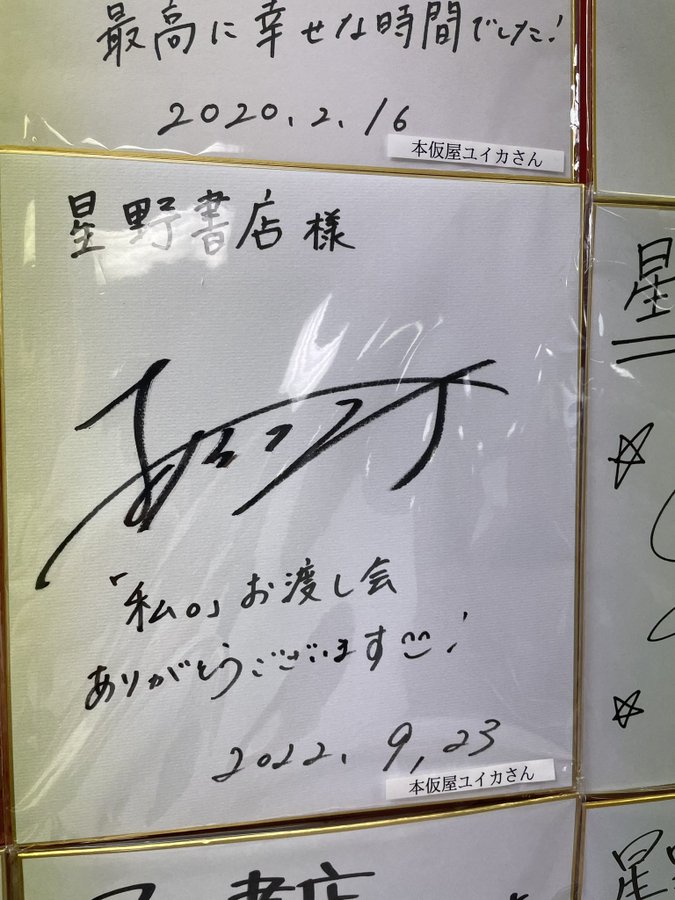 最高に幸せな時間でした!
2020.2.16
本仮屋ユイカさん
星野書店様
「私。」お渡し会
ありがとうございます!
2022.9.23
本仮屋ユイカさん
星
星
書店